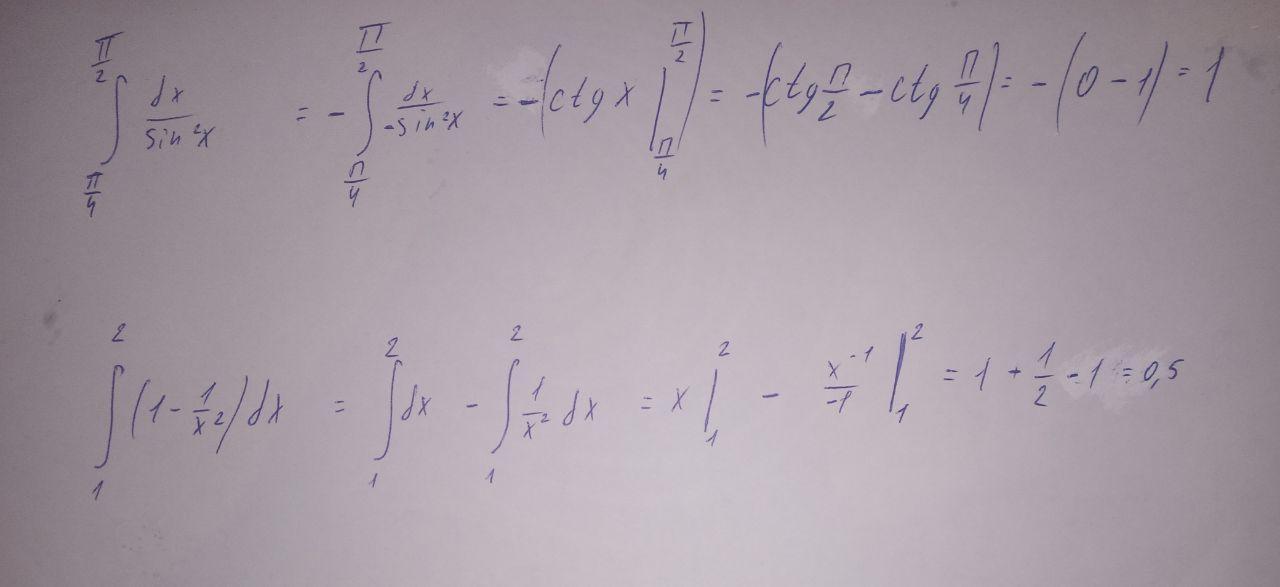 ∫_{π/4}^{π/2} dx/sin²x = -∫_{π/4}^{π/2} dx/-sin²x = -(ctg x |_{π/4}^{π/2}) = -(ctg π/2 - ctg π/4) = -(0 - 1) = 1
∫_1^2 (1 - 1/x²)dx = ∫_1^2 dx - ∫_1^2 1/x² dx = x|_1^2 - x^{-1}/-1 |_1^2 = 1 + 1/2 - 1 = 0,5